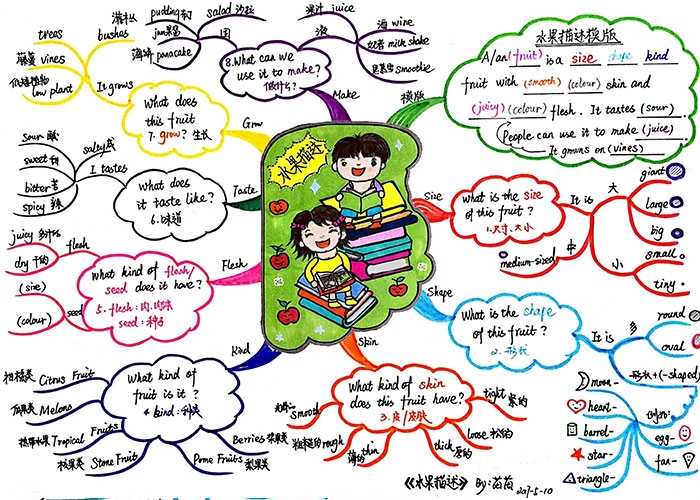 水果描述
水果描述模版
A/an (fruit) is a size shape kind
fruit with (smooth) (colour) skin and
(juicy) (colour) flesh. It tastes (sour).
People can use it to make (juice)
It grows on (vines)
模版
Size
what is the size
of this fruit?
1.尺寸.大小
It is
大
giant
large
big
中
medium-sized
小
small
tiny
Shape
What is the shape
of this fruit?
2. 形状
It is
round
oval
形状+(-shaped)
moon-
heart-
barrel-
star-
triangle-
egg-
fan-
Skin
What kind of skin
does this fruit have?
3.皮/皮肤
Smooth
粗糙的rough
薄的thin
thick厚的
loose 松的
tight 紧的
Kind
What kind of
fruit is it?
4.kind:种类
柑橘类 Citrus Fruit
瓜果类 Melons
热带水果Tropical Fruits
核果类 Stone Fruit
Pome Fruits 梨果类
Berries 浆果类
Flesh
What kind of flesh/
seed does it have?
5. flesh:肉.肉体
seed:种子
flesh
juicy 多汁的
dry 干的
seed
(size)
(colour)
Taste
What does
it taste like?
6.味道
I tastes
salty 咸
sour 酸
sweet 甜
bitter 苦
spicy 辣
Grow
What does
this fruit
7. grow? 生长
It grows
灌木 bushes
trees
藤蔓 vines
low plant
Make
8.What can we
use it to make?
做什么?
固
salad 沙拉
pudding
jam果酱
薄饼 pancake
液
果汁 juice
酒 wine
奶昔 milk shake
smoothie
《水果描述》 By:苗苗
2017-5-10